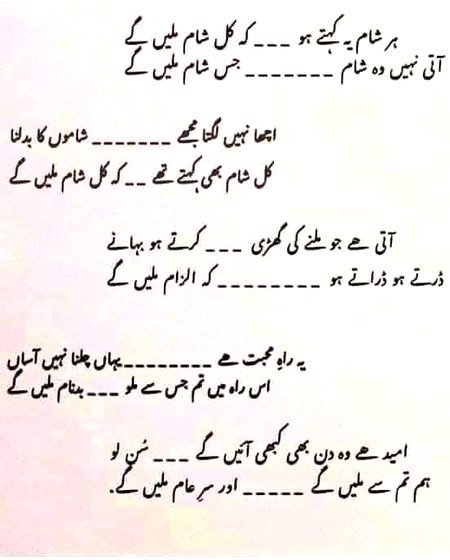 ہر شام یہ کہتے ہو ___ کہ کل شام ملیں گے
آتی نہیں وہ شام _______ جس شام ملیں گے
اچھا نہیں لگتا مجھے _______ شاموں کا بدلنا
کل شام بھی کہتے تھے __ کہ کل شام ملیں گے
آتی ھے جو ملنے کی گھڑی ___ کرتے ہو بہانے
ڈرتے ہو ڈراتے ہو ________ کہ الزام ملیں گے
یہ راہِ محبت ھے ________ یہاں چلنا نہیں آساں
اس راہ میں تم جس سے ملو ___ بدنام ملیں گے
امید ھے وہ دن بھی کبھی آئیں گے ___ سُن لو
ہم تم سے ملیں گے _____ اور سرِ عام ملیں گے.